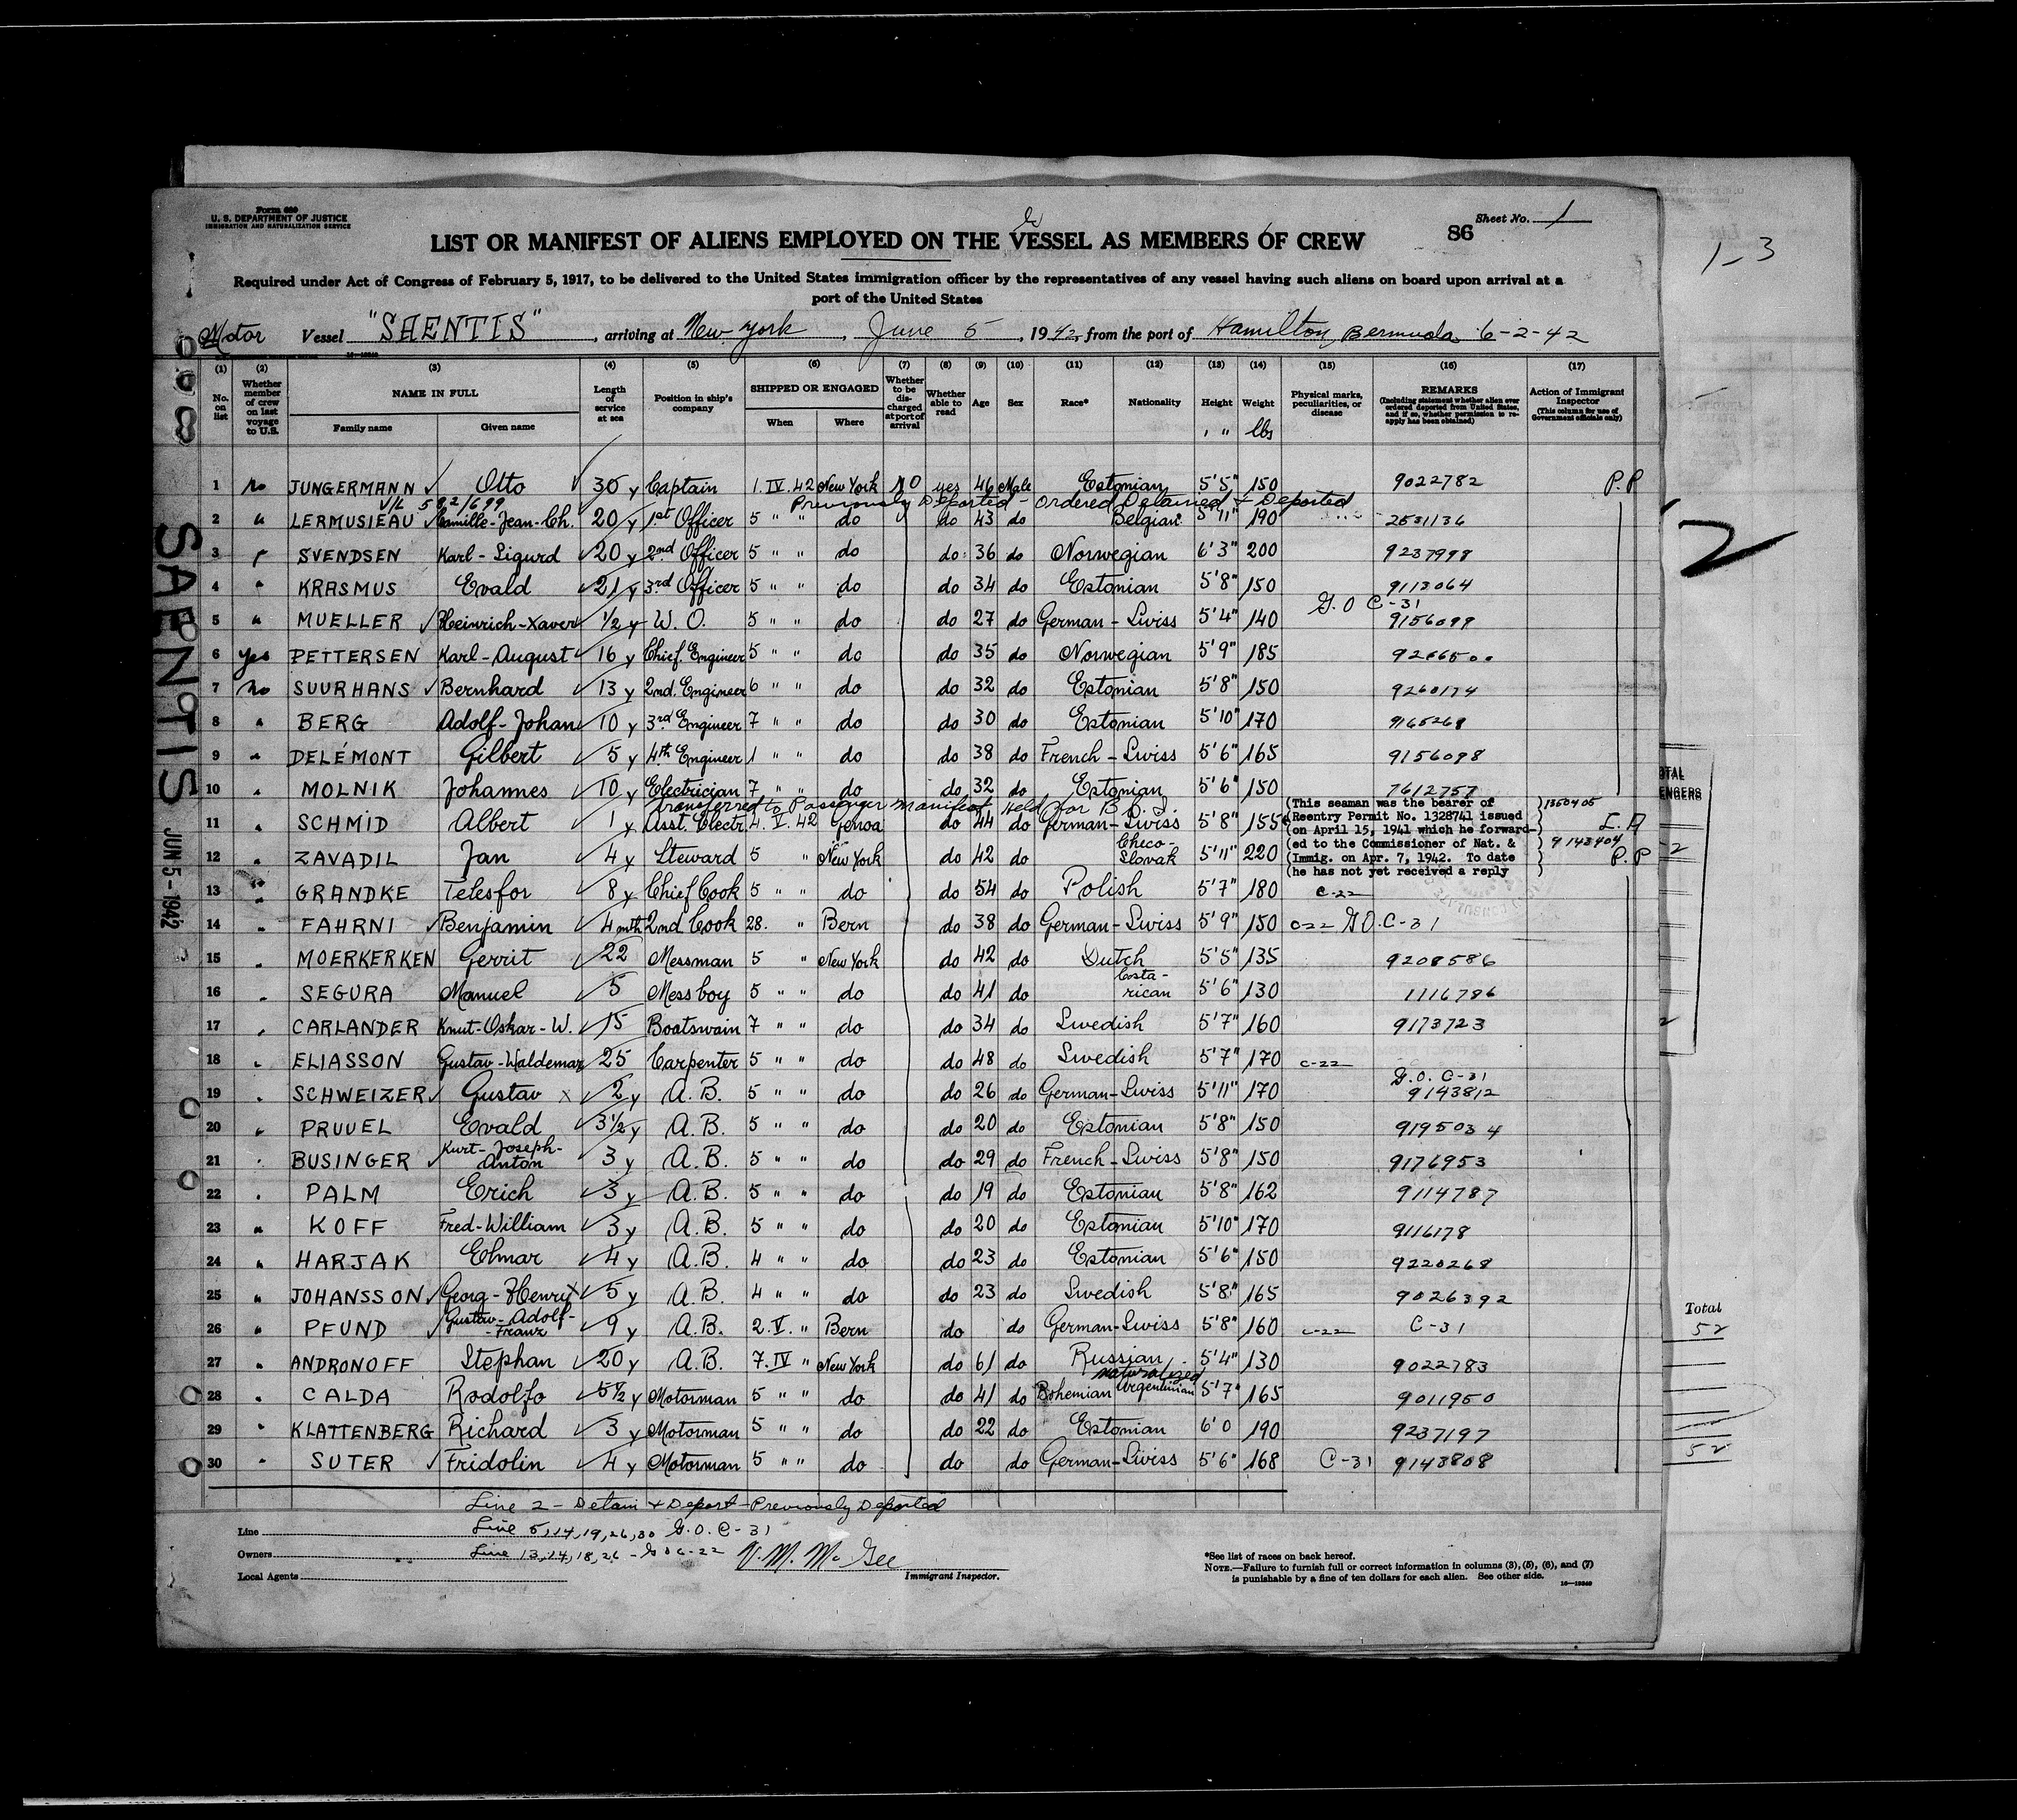 Form 680
U. S. DEPARTMENT OF JUSTICE
IMMIGRATION AND NATURALIZATION SERVICE
Sheet No. 1
86
LIST OR MANIFEST OF ALIENS EMPLOYED ON THE VESSEL AS MEMBERS OF CREW
Required under Act of Congress of February 5, 1917, to be delivered to the United States immigration officer by the representatives of any vessel having such aliens on board upon arrival at a
port of the United States
Motor Vessel "SAENTIS", arriving at New York, June 5, 1942, from the port of Hamilton, Bermuda 6-2-42
(1) No. on list
(2) Whether member of crew on last voyage to U.S.
(3) NAME IN FULL Family name Given name
(4) Length of service at sea
(5) Position in ship's company
(6) SHIPPED OR ENGAGED When Where
(7) Whether to be discharged at port of arrival
(8) Whether able to read
(9) Age
(10) Sex
(11) Race*
(12) Nationality
(13) Height ' "
(14) Weight lbs
(15) Physical marks, peculiarities, or disease
(16) REMARKS (Including statement whether alien ever ordered deported from United States, and if so, whether permission to reapply has been obtained)
(17) Action of Immigrant Inspector (This column for use of Government officials only)
1 no JUNGERMANN Otto 30 y Captain 1. IV. 42 New York NO yes 46 Male Estonian 5'5" 150 9022782 P.P
Previously Deported - Ordered Detained & Deported
2 " LERMUSIEAU Camille-Jean-Ch. 20 y 1st Officer 5 " " do do 43 do Belgian 5'11" 190 2531136
3 " SVENDSEN Karl-Sigurd 20 y 2nd Officer 5 " " do do 36 do Norwegian 6'3" 200 9237998
4 " KRASMUS Evald 21 y 3rd Officer 5 " " do do 34 do Estonian 5'8" 150 9113064
G.O C-31
5 " MUELLER Heinrich-Xaver 1/2 y W. O. 5 " " do do 27 do German-Swiss 5'4" 140 9156099
6 Yes PETTERSEN Karl-August 16 y Chief. Engineer 5 " " do do 35 do Norwegian 5'9" 185
7 No SUURHANS Bernhard 13 y 2nd. Engineer 6 " " do do 32 do Estonian 5'8" 150 9260174
8 " BERG Adolf-Johan 10 y 3rd Engineer 7 " " do do 30 do Estonian 5'10" 170 9165268
9 " DELÉMONT Gilbert 5 y 4th Engineer 1 " " do do 38 do French-Swiss 5'6" 165 9156098
10 " MOLNIK Johannes 10 y Electrician 7 " " do do 32 do Estonian 5'6" 150 7612757
Transferred to Passenger manifest Held for B.S.I.
11 " SCHMID Albert 1 y Asst. Electr. 4. V. 42 Genoa do 44 do German-Swiss 5'8" 155 1350405
(This seaman was the bearer of
(Reentry Permit No. 1328741 issued
(on April 15, 1941 which he forward-
(ed to the Commissioner of Nat. &
(Immig. on Apr. 7, 1942. To date
(he has not yet received a reply
12 " ZAVADIL Jan 4 y Steward 5 " New York do 42 do Checo-Slovak 5'11" 220 9143404 P.P
13 " GRANDKE Telesfor 8 y Chief Cook 5 " " do do 54 do Polish 5'7" 180 C-22
14 " FAHRNI Benjamin 4 mth 2nd. Cook 28. " Bern do 38 do German-Swiss 5'9" 150 C-22 G.O. C-31
15 " MOERKERKEN Gerrit 22 Messman 5 " New York do 42 do Dutch 5'5" 135 9208586
16 " SEGURA Manuel 5 Mess boy 5 " " do do 41 do Costa-rican 5'6" 130 1116786
17 " CARLANDER Knut-Oskar-W. 15 Boatswain 7 " " do do 34 do Swedish 5'7" 160 9173723
18 " ELIASSON Gustav-Waldemar 25 Carpenter 5 " " do do 48 do Swedish 5'7" 170 C-22
G.O. C-31
19 " SCHWEIZER Gustav 2 y A.B. 5 " " do do 26 do German-Swiss 5'11" 170 9143812
20 " PRUUEL Evald 3 1/2 y A.B. 5 " " do do 20 do Estonian 5'8" 150 9195034
21 " BUSINGER Kurt-Joseph-Anton 3 y A.B. 5 " " do do 29 do French-Swiss 5'8" 150 9176953
22 " PALM Erich 3 y A.B. 5 " " do do 19 do Estonian 5'8" 162 9114787
23 " KOFF Fred-William 3 y A.B. 5 " " do do 20 do Estonian 5'10" 170 9116178
24 " HARJAK Elmar 4 y A.B. 4 " " do do 23 do Estonian 5'6" 150 9220268
25 " JOHANSSON Georg-Henry 5 y A.B. 4 " " do do 23 do Swedish 5'8" 165 9026392
26 " PFUND Gustav-Adolf-Franz 9 y A.B. 2. V. " Bern do do German-Swiss 5'8" 160 C-22 C-31
27 " ANDRONOFF Stephan 20 y A.B. 7. IV " New York do 61 do Russian 5'4" 130 9022783
28 " CALDA Rodolfo 5 1/2 y Motorman 5 " " do do 41 do Bohemian naturalized Argentinian 5'7" 165 9011950
29 " KLATTENBERG Richard 3 y Motorman 5 " " do do 22 do Estonian 6'0 190 9237197
30 " SUTER Fridolin 4 y Motorman 5 " " do do do German-Swiss 5'6" 168 C-31 9143808
Line 2 - Detain & Deport - Previously Deported
Line Line 5, 14, 19, 26, 30 G.O. C-31
Owners Line 13, 14, 18, 26 - G.O C-22
Local Agents
V. M. McGee
Immigrant Inspector.
*See list of races on back hereof.
NOTE.—Failure to furnish full or correct information in columns (3), (5), (6), and (7)
is punishable by a fine of ten dollars for each alien. See other side.
SAENTIS
JUN 5 - 1942
1-3
2
Total
52
52